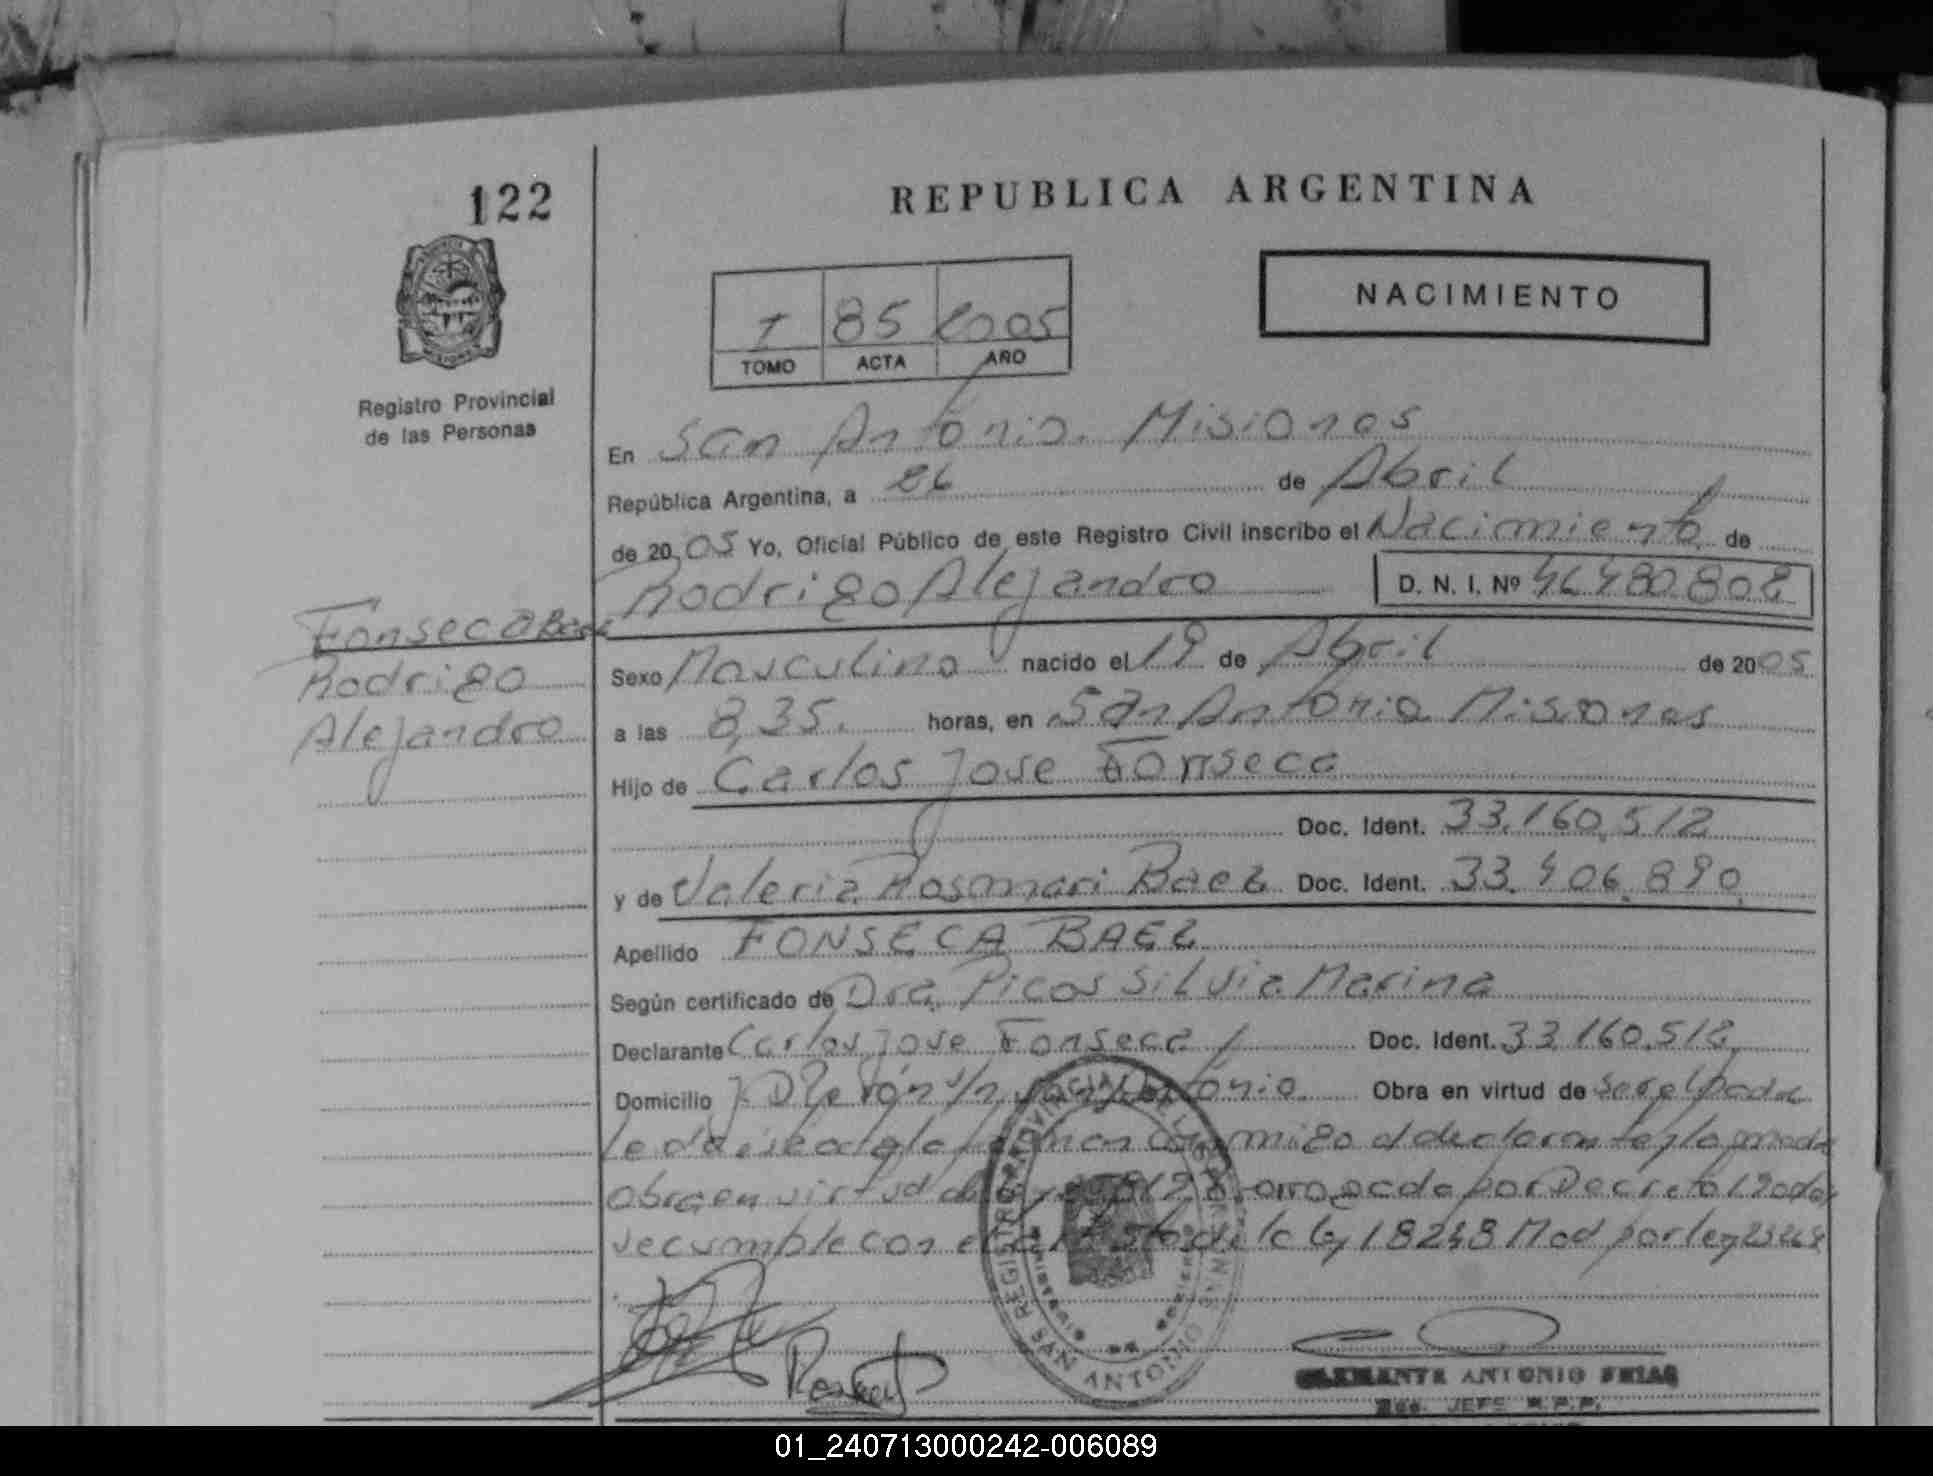 122
REPUBLICA ARGENTINA
NACIMIENTO
I 85 2005
TOMO ACTA AÑO
Registro Provincial
de las Personas
En San Antonio. Misiones
República Argentina, a 26 de Abril
de 2005 Yo, Oficial Público de este Registro Civil inscribo el Nacimiento de
Rodrigo Alejandro D. N. I. Nº 46480.808
Fonseca Baez
Rodrigo
Alejandro
Sexo Masculino nacido el 19 de Abril de 2005
a las 8,35. horas, en San Antonio Misiones
Hijo de Carlos Jose Fonseca
Doc. Ident. 33.160.512
y de Valeria Rosmari Baez Doc. Ident. 33.406.890
Apellido FONSECA BAEZ
Según certificado de Dra. Picos Silvia Marina
Declarante Carlos Jose Fonseca Doc. Ident. 33.160.512
Domicilio J D Perón s/n San Antonio. Obra en virtud de ser el padre
conmigo el declarante y la madre
obra en virtud por Decreto
se cumple con el de la ley 18248 Mod por ley 23264
REGISTRO PROVINCIAL DE LAS PERSONAS
SAN ANTONIO
MINISTERIO DE GOBIERNO
CLEMENTE ANTONIO FRIAS
JEFE R.P.P.
01_240713000242-006089